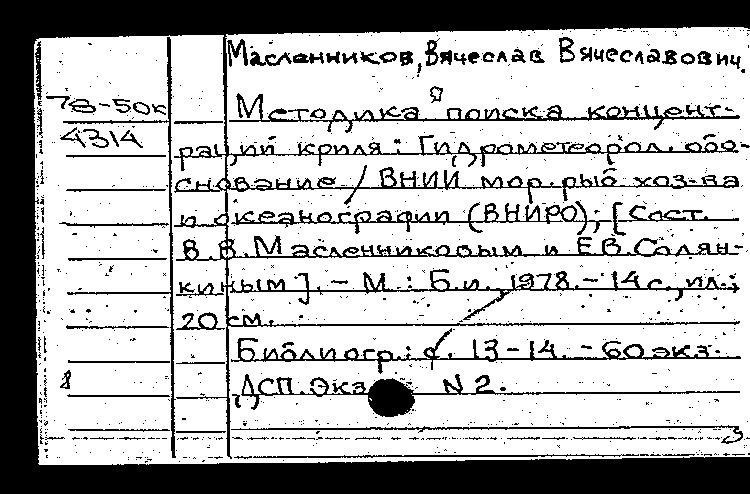 Масленников, Вячеслав Вячеславович.
78-50к
4314
Методика поиска концент-
раций криля: Гидрометеорол. обо-
снование / ВНИИ мор. рыб. хоз-ва
и океанографии (ВНИРО); [Сост.
В.В. Масленниковым и Е.В. Солян-
киным]. - М.: Б.и., 1978. - 14 с., ил.;
20 см.
Библиогр.: с. 13-14. - 60 экз.
ДСП. Экз N 2.